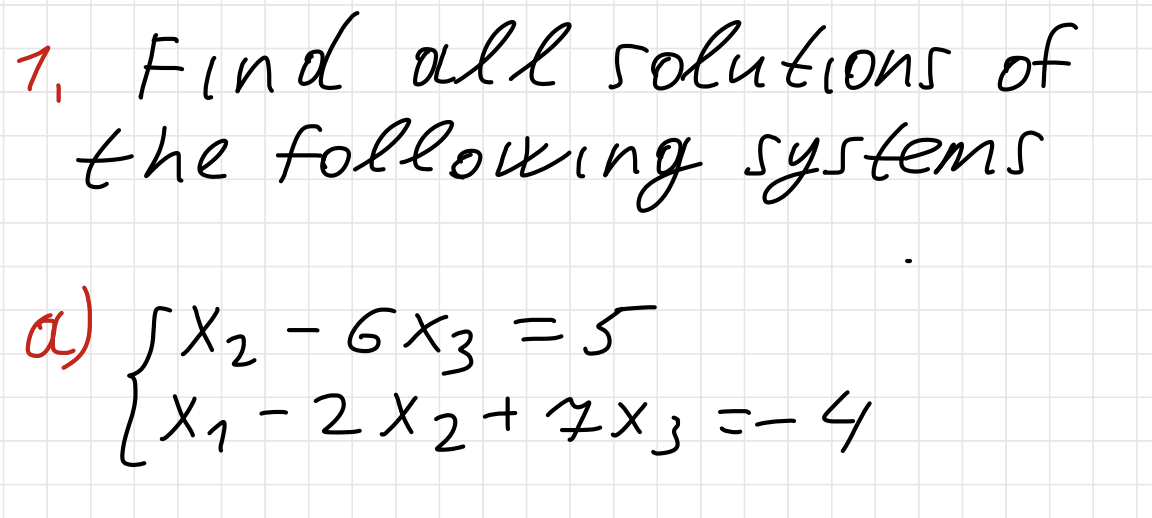 1. Find all solutions of
the following systems
a) { x₂ - 6x₃ = 5
x₁ - 2x₂ + 7x₃ = -4